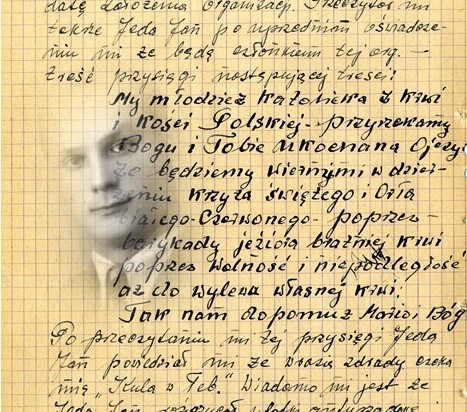 datę założenia organizacji. Przeczytał mi
także Jeda Jan po uprzednim oświadcze-
niu mi że będę członkiem tej org. —
treść przysięgi następującej treści:
My młodzież katolicka z krwi
i kości Polskiej - przyrzekamy
Bogu i Tobie ukochana Ojczy
że będziemy wiernymi w dzier-
żeniu krzyża świętego i Orła
białego-Czerwonego - poprzez -
barykady jeziora bratniej krwi
poprzez wolność i niepodległość
aż do wylewu własnej krwi.
Tak nam dopomóż Bóg
Po przeczytaniu mi tej przysięgi Jeda
Jan powiedział mi że wrazie zdrady czeka
mię „Kula w łeb." Wiadomo mi jest że
Jeda Jan